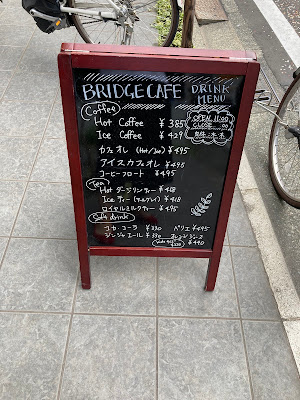 BRIDGE CAFE DRINK MENU
OPEN 11:00
CLOSE
Coffee
Hot Coffee ¥385
Ice Coffee ¥429
カフェオレ (Hot/Ice) ¥495
アイスカフェオレ ¥495
コーヒーフロート ¥495
Tea
Hot ダージリンティー ¥418
Ice ティー (アールグレイ) ¥418
ロイヤルミルクティー ¥495
Soft drink
コカ・コーラ ¥330 ペリエ ¥495
ジンジャエール ¥330 オレンジジュース
¥440